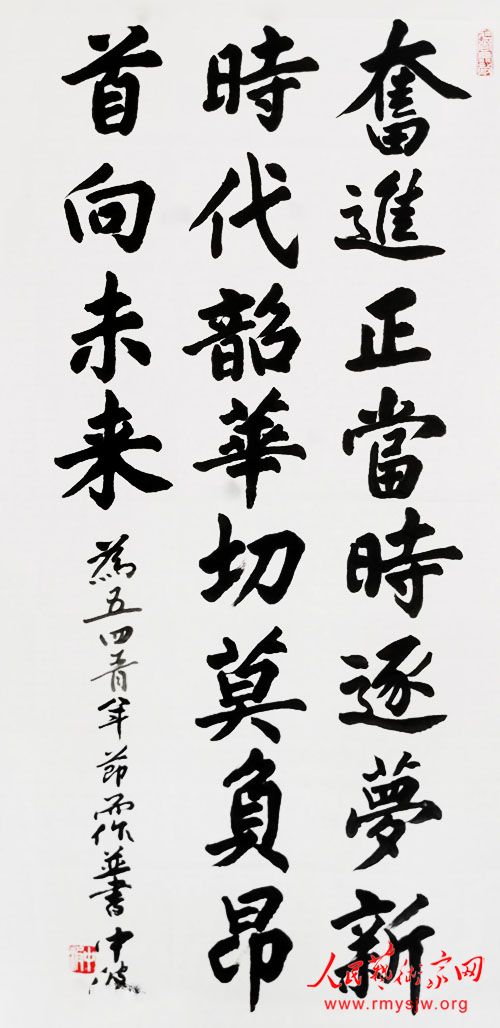 奮進正當時逐夢新
時代韶華切莫負昂
首向未来
為五四青年節而作並書 中波
人民藝術家网
www.rmysjw.org